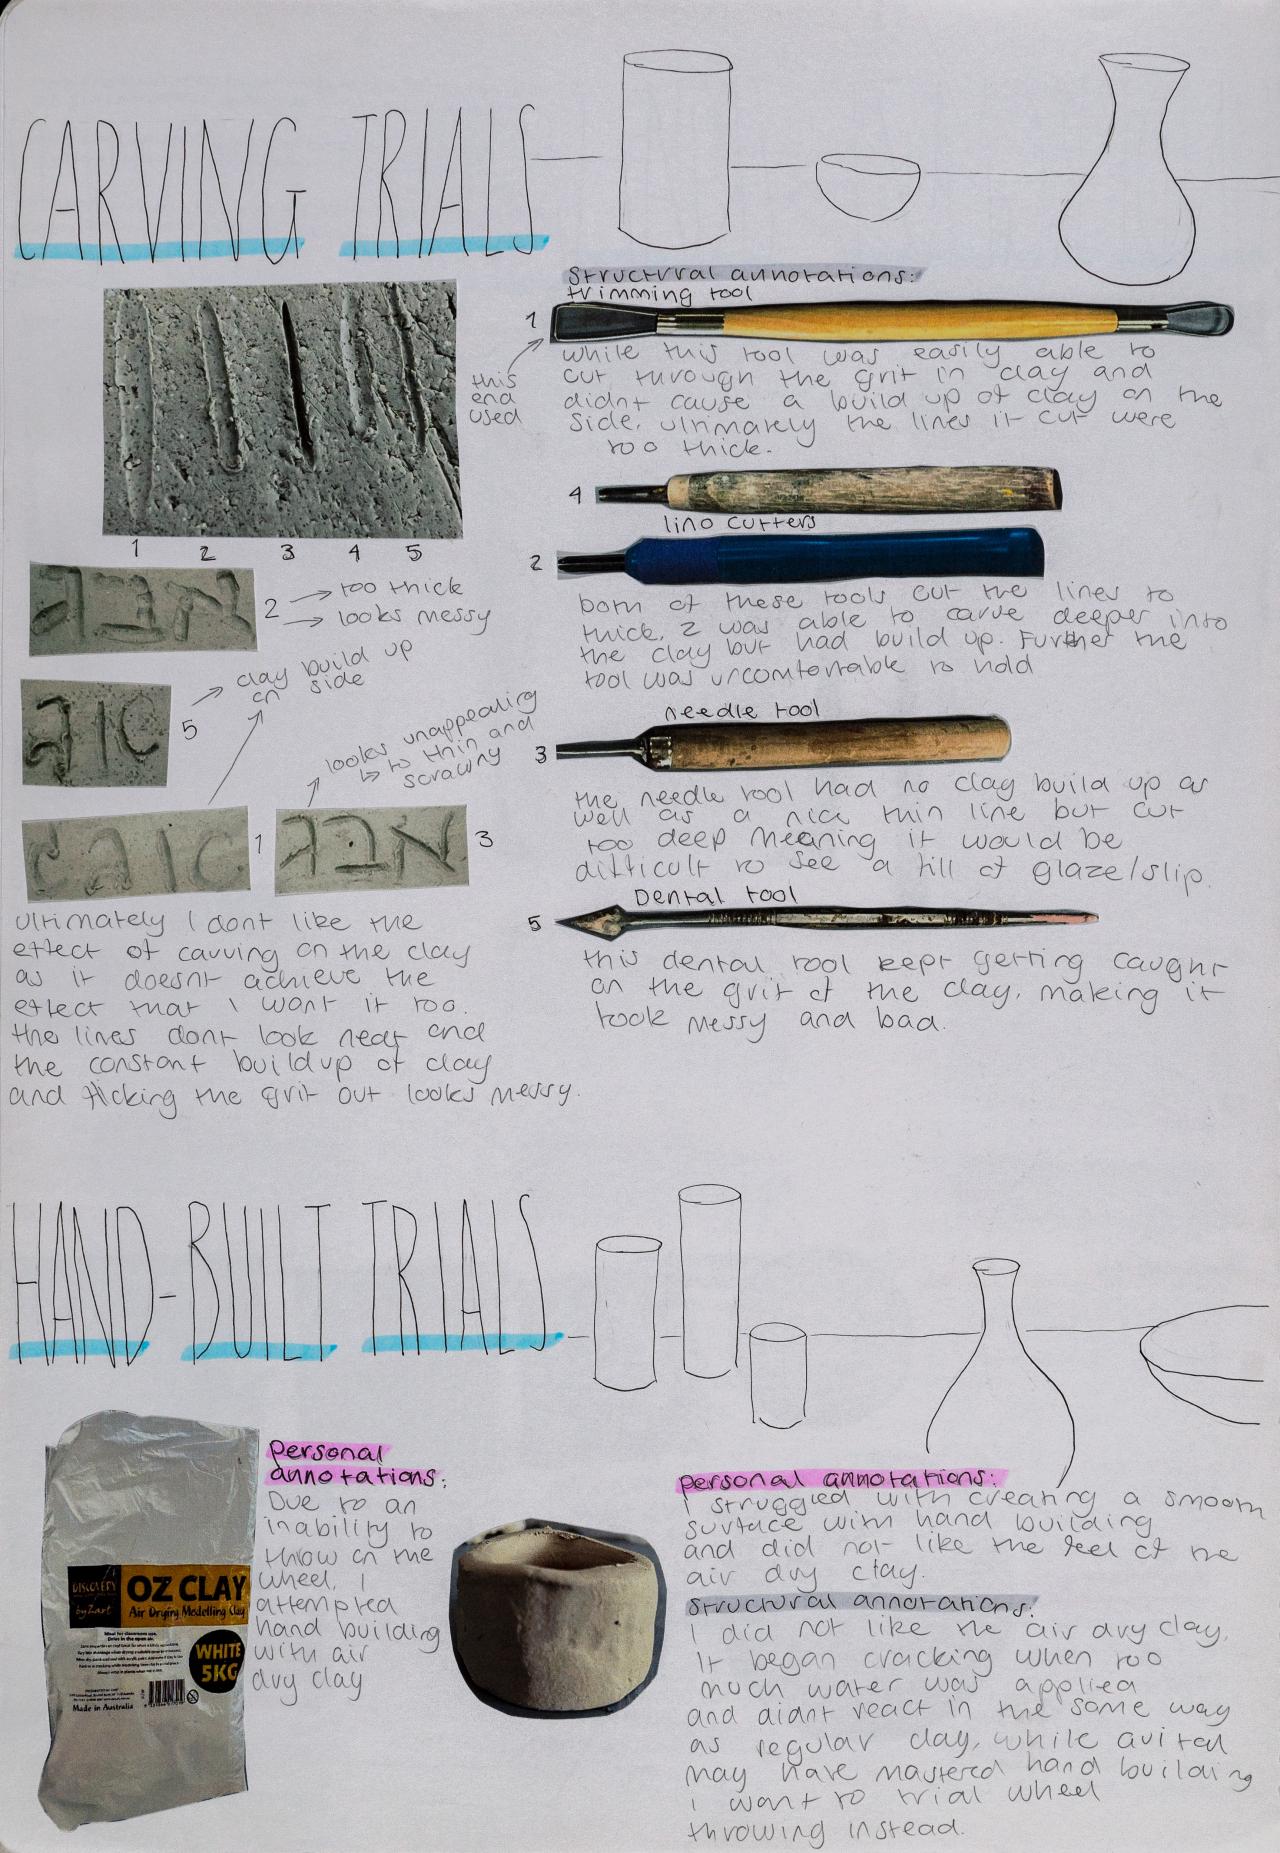 CARVING TRIALS
Structural annotations:
trimming tool
1
this
end
used
while this tool was easily able to
cut through the grit in clay and
didnt cause a build up of clay on the
side, ultimately the lines it cut were
too thick.
4
lino cutters
2
both of these tools cut the lines to
thick. 2 was able to carve deeper into
the clay but had build up. Further the
tool was uncomfortable to hold
needle tool
3
the needle tool had no clay build up as
well as a nice thin line but cut
too deep meaning it would be
difficult to see a fill of glaze/slip.
Dental tool
5
this dental tool kept getting caught
on the grit of the clay, making it
look messy and bad.
1 2 3 4 5
2 → too thick
→ looks messy
5 → clay build up
on side
looks unappealing
↳ to thin and
scrawny
1
3
ultimately I dont like the
effect of carving on the clay
as it doesnt achieve the
effect that I want it too.
the lines dont look neat and
the constant buildup of clay
and flicking the grit out looks messy.
HAND-BUILT TRIALS
DISCOVERY
by Zart
OZ CLAY
Air Drying Modelling Clay
WHITE
5KG
Made in Australia
personal
annotations:
Due to an
inability to
throw on the
wheel, I
attempted
hand building
with air
dry clay
personal annotations:
I struggled with creating a smooth
surface with hand building
and did not like the feel of the
air dry clay.
Structural annotations:
I did not like the air dry clay.
It began cracking when too
much water was applied
and didnt react in the same way
as regular clay, while avital
may have mastered hand building
I want to trial wheel
throwing instead.